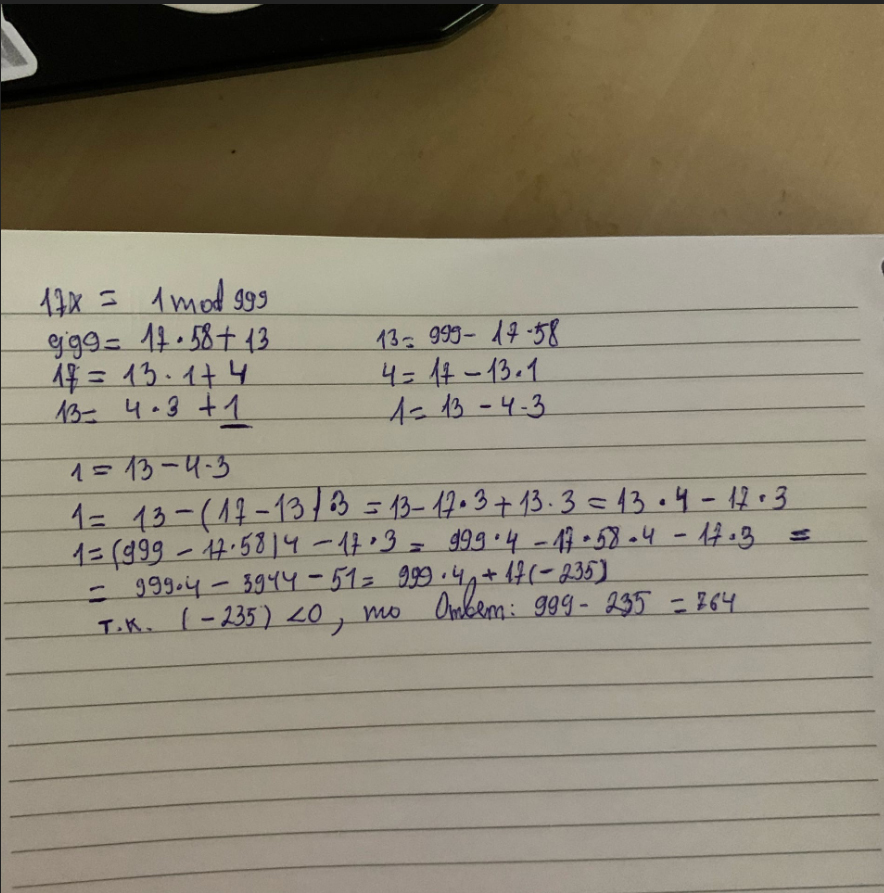 17x = 1 mod 999
999 = 17·58 + 13 13 = 999 - 17·58
17 = 13·1 + 4 4 = 17 - 13·1
13 = 4·3 + 1 1 = 13 - 4·3
1 = 13 - 4·3
1 = 13 - (17 - 13)·3 = 13 - 17·3 + 13·3 = 13·4 - 17·3
1 = (999 - 17·58)4 - 17·3 = 999·4 - 17·58·4 - 17·3 =
= 999·4 - 3944 - 51 = 999·4 + 17(-235)
т.к. (-235) < 0, то Ответ: 999 - 235 = 764